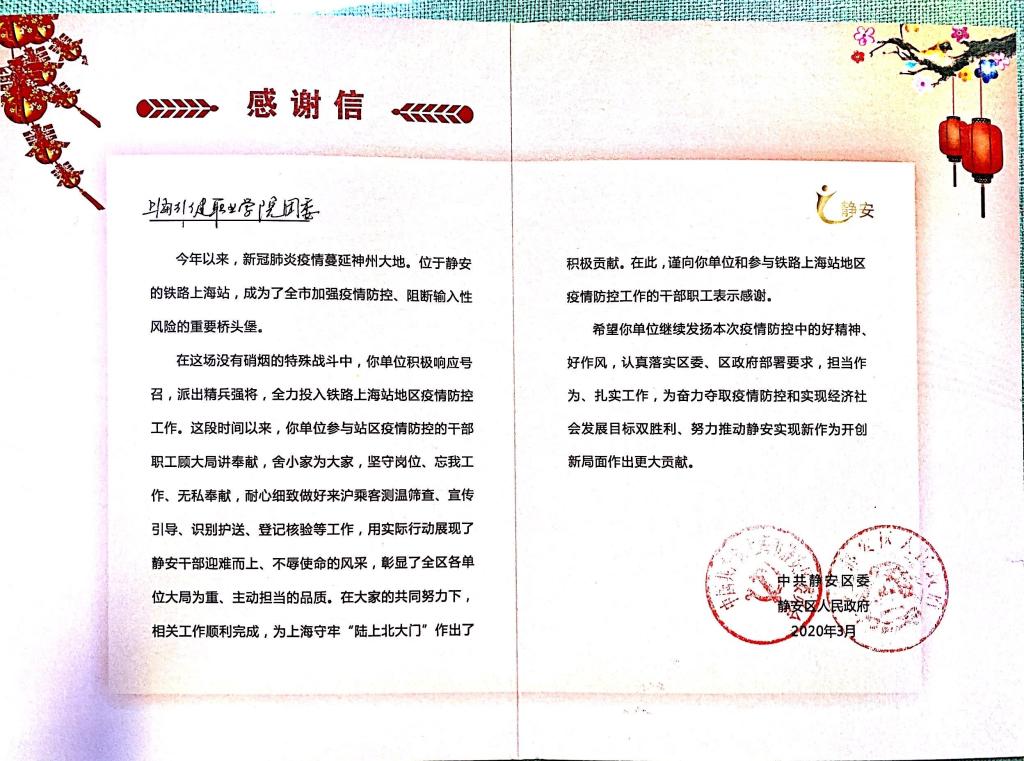 感谢信
上海行健职业学院团委
今年以来，新冠肺炎疫情蔓延神州大地。位于静安
的铁路上海站，成为了全市加强疫情防控、阻断输入性
风险的重要桥头堡。
在这场没有硝烟的特殊战斗中，你单位积极响应号
召，派出精兵强将，全力投入铁路上海站地区疫情防控
工作。这段时间以来，你单位参与站区疫情防控的干部
职工顾大局讲奉献，舍小家为大家，坚守岗位、忘我工
作、无私奉献，耐心细致做好来沪乘客测温筛查、宣传
引导、识别护送、登记核验等工作，用实际行动展现了
静安干部迎难而上、不辱使命的风采，彰显了全区各单
位大局为重、主动担当的品质。在大家的共同努力下，
相关工作顺利完成，为上海守牢“陆上北大门”作出了
静安
积极贡献。在此，谨向你单位和参与铁路上海站地区
疫情防控工作的干部职工表示感谢。
希望你单位继续发扬本次疫情防控中的好精神、
好作风，认真落实区委、区政府部署要求，担当作
为、扎实工作，为奋力夺取疫情防控和实现经济社
会发展目标双胜利、努力推动静安实现新作为开创
新局面作出更大贡献。
中共静安区委
静安区人民政府
2020年3月